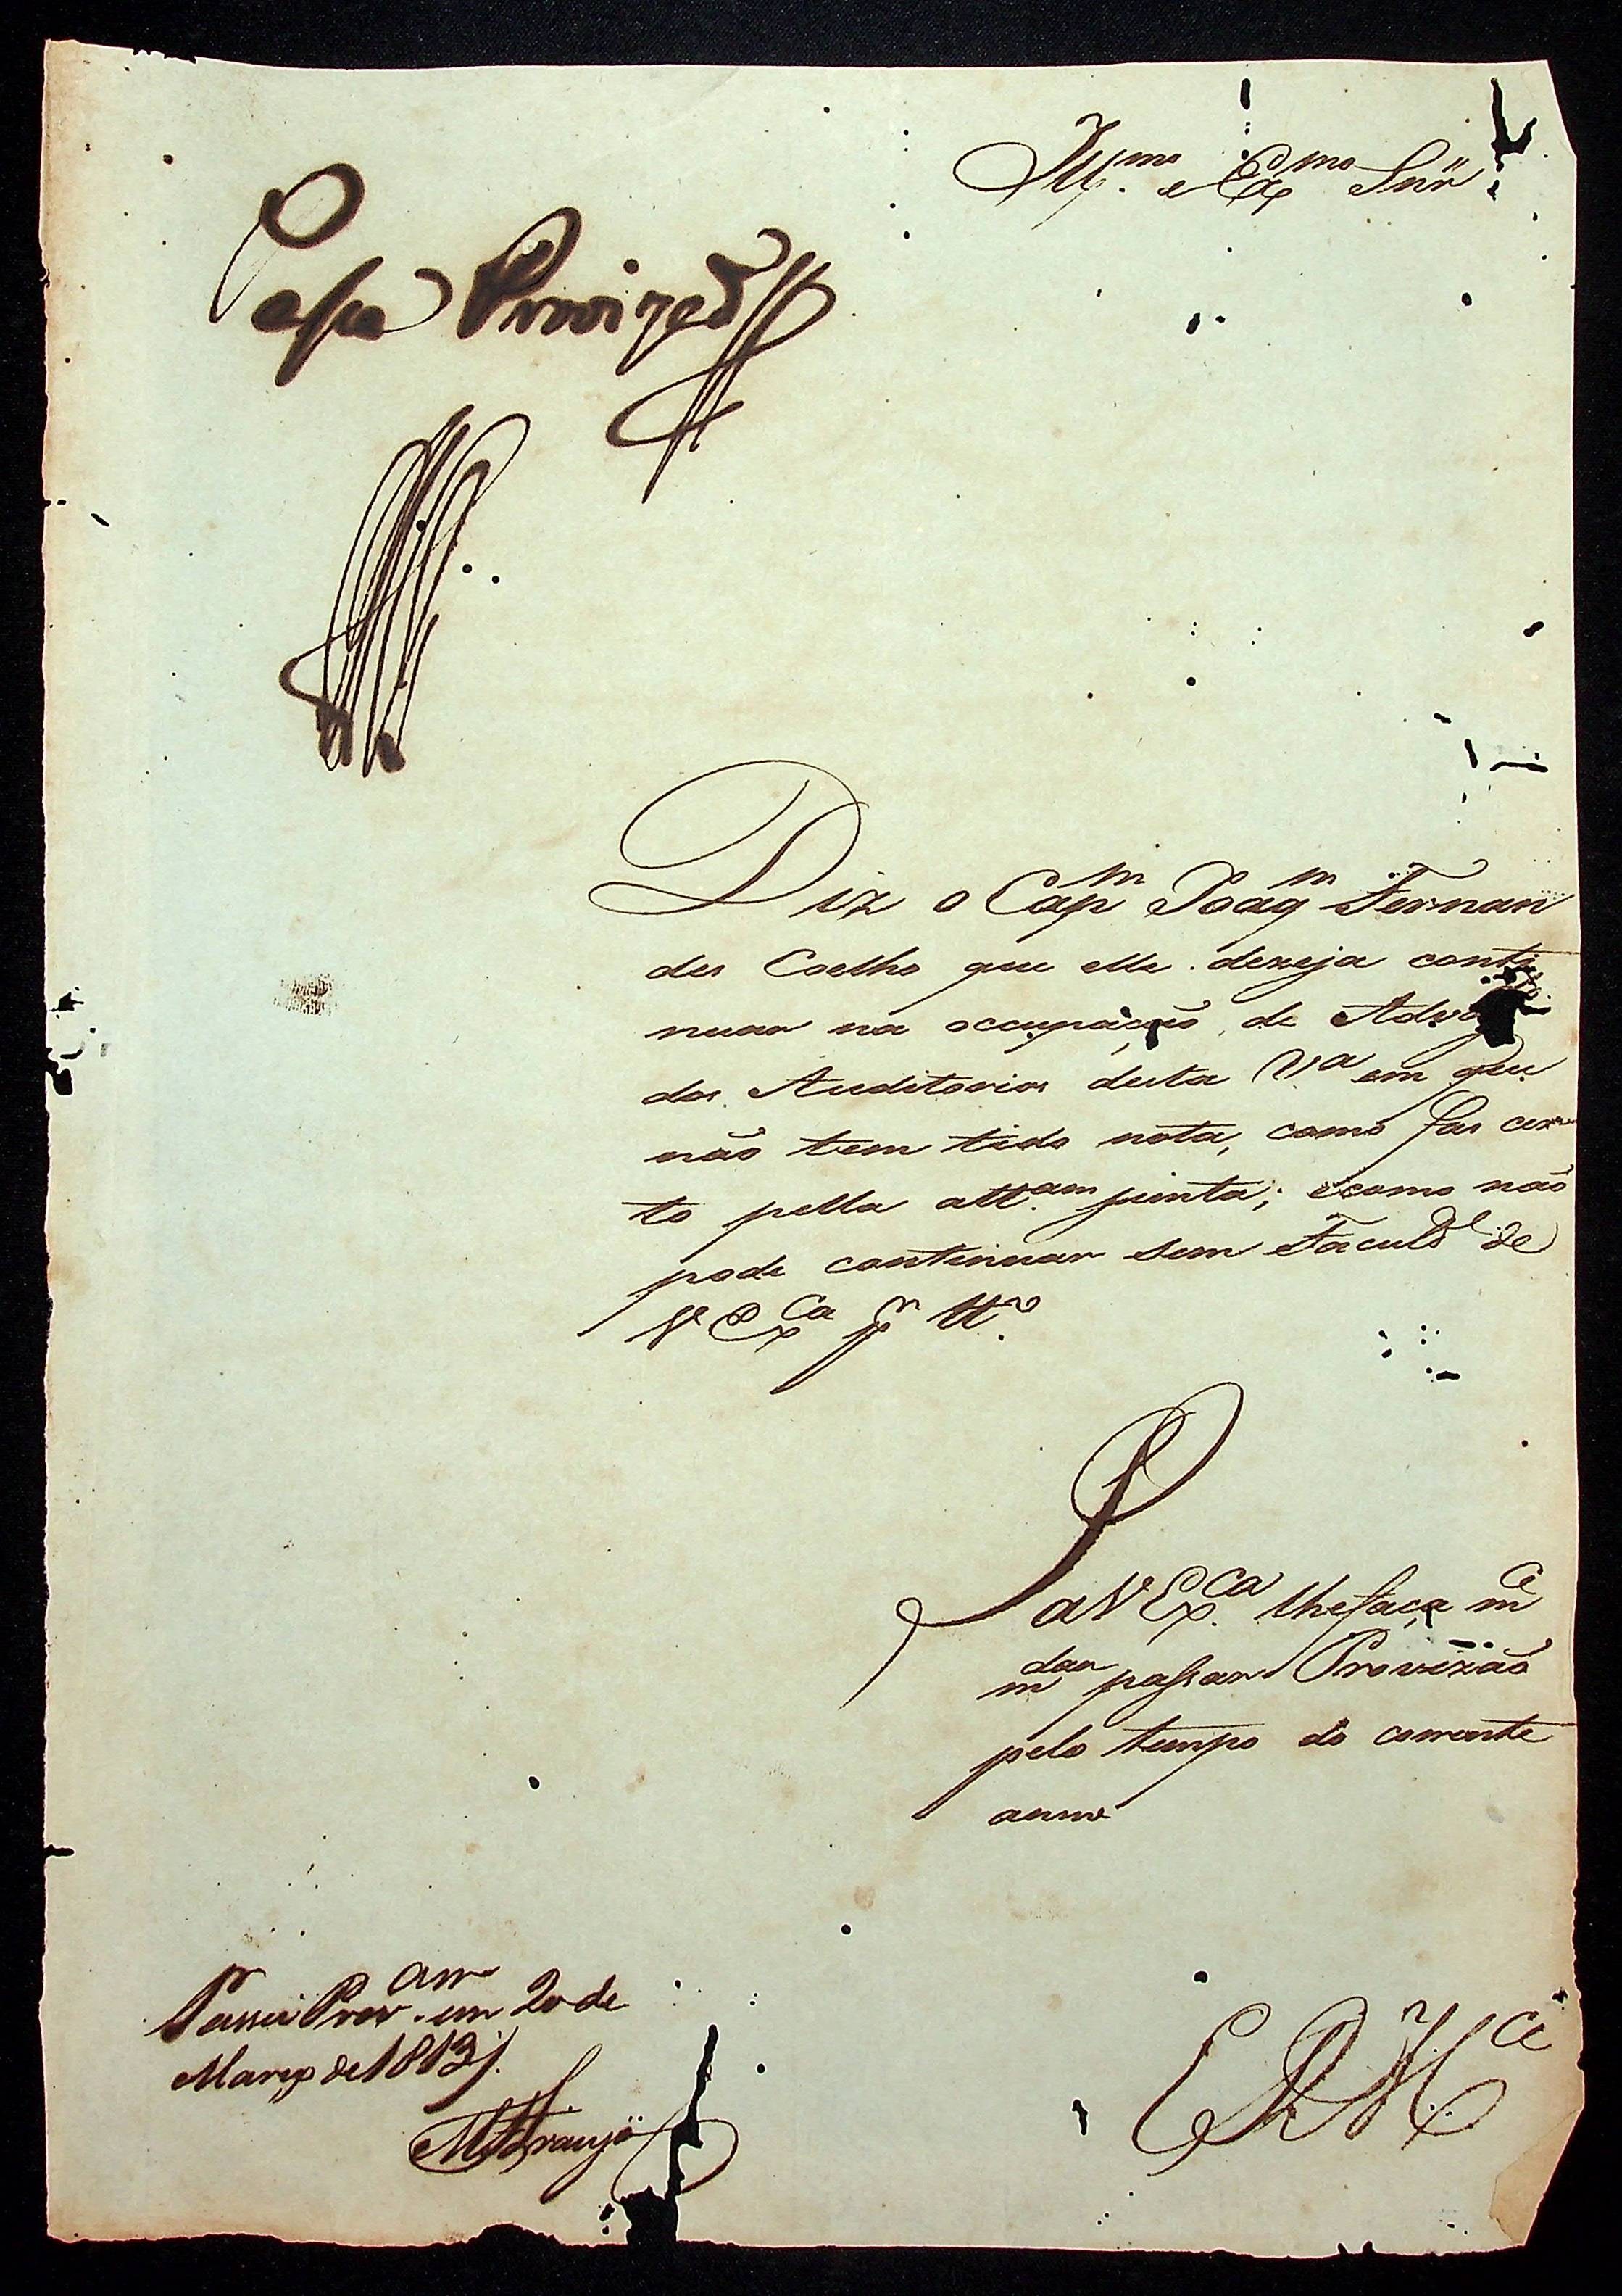 Ill.mo e Ex.mo Snr̃
Passe Provizaõ
Diz o Cap.m Joaq.m Fernan
des Coelho que elle dezeja conti
nuar na occupação de
dos Auditorios desta V.a em que
não tem tido nota, como fas cer
to pella att.am junta; e como não
pode continuar sem Faculd.e de
V Ex.ca p.r tt.o
P
a V Ex.ca lhe faça m.ce
m.dar passar Provizão
pelo tempo do corrente
anno
E R M.ce
Passei Prov.am em 20 de
Março de 1813
M Araujo